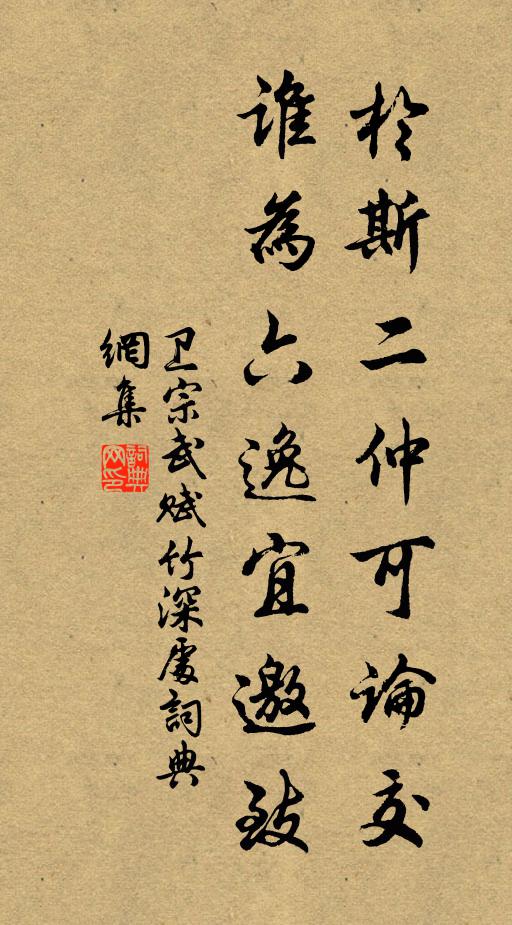 於斯二仲可論交
誰為六逸宜邀致
卫宗武賦竹深處詞典
網集
詞典
网印